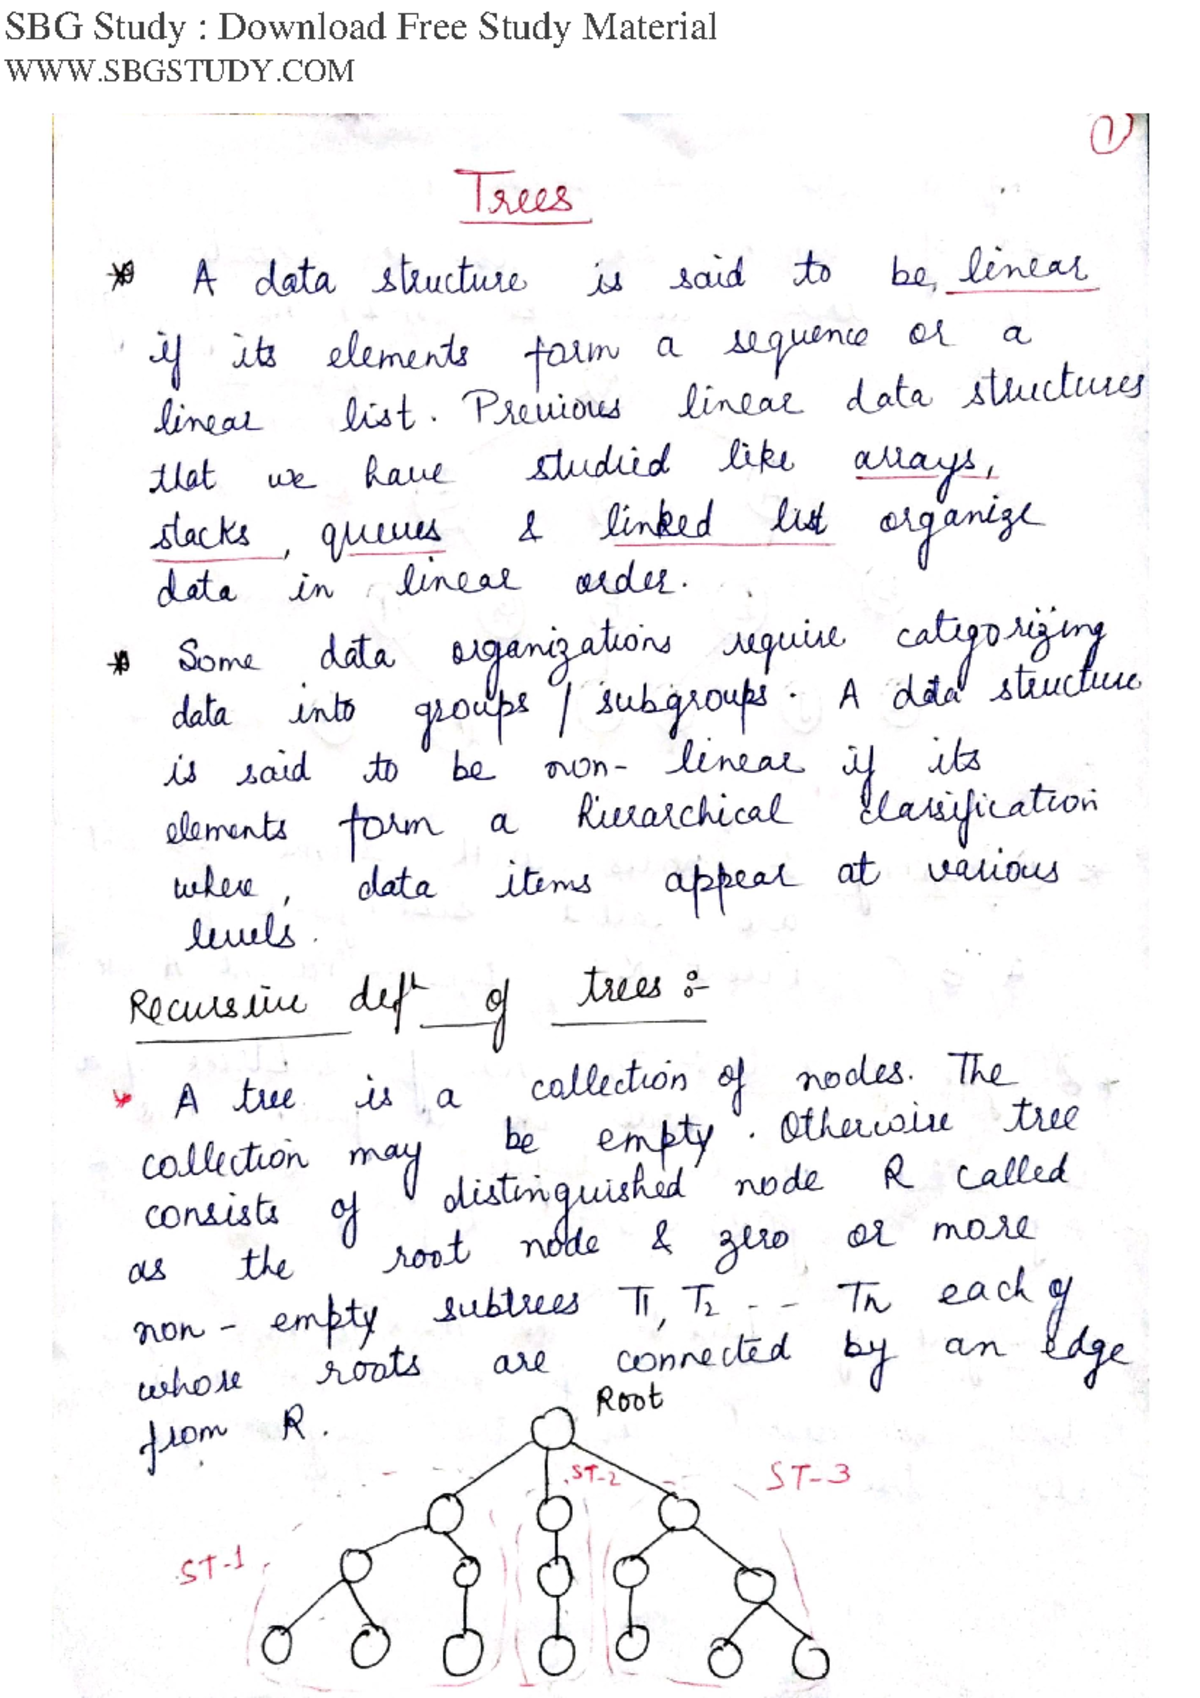 SBG Study : Download Free Study Material
WWW.SBGSTUDY.COM
1
Trees
A data structure is said to be, linear
if its elements form a sequence or a
linear list. Previous linear data structures
that we have studied like arrays,
stacks, queues & linked list organize
data in linear order.
Some data organizations require categorizing
data into groups / subgroups. A data structure
is said to be non-linear if its
elements form a hierarchical classification
where, data items appear at various
levels.
Recursive defn of trees :-
A tree is a collection of nodes. The
collection may be empty. Otherwise tree
consists of distinguished node R called
as the root node & zero or more
non-empty subtrees T1, T2 -- Tn each of
whose roots are connected by an edge
from R.
Root
ST-2
ST-3
ST-1